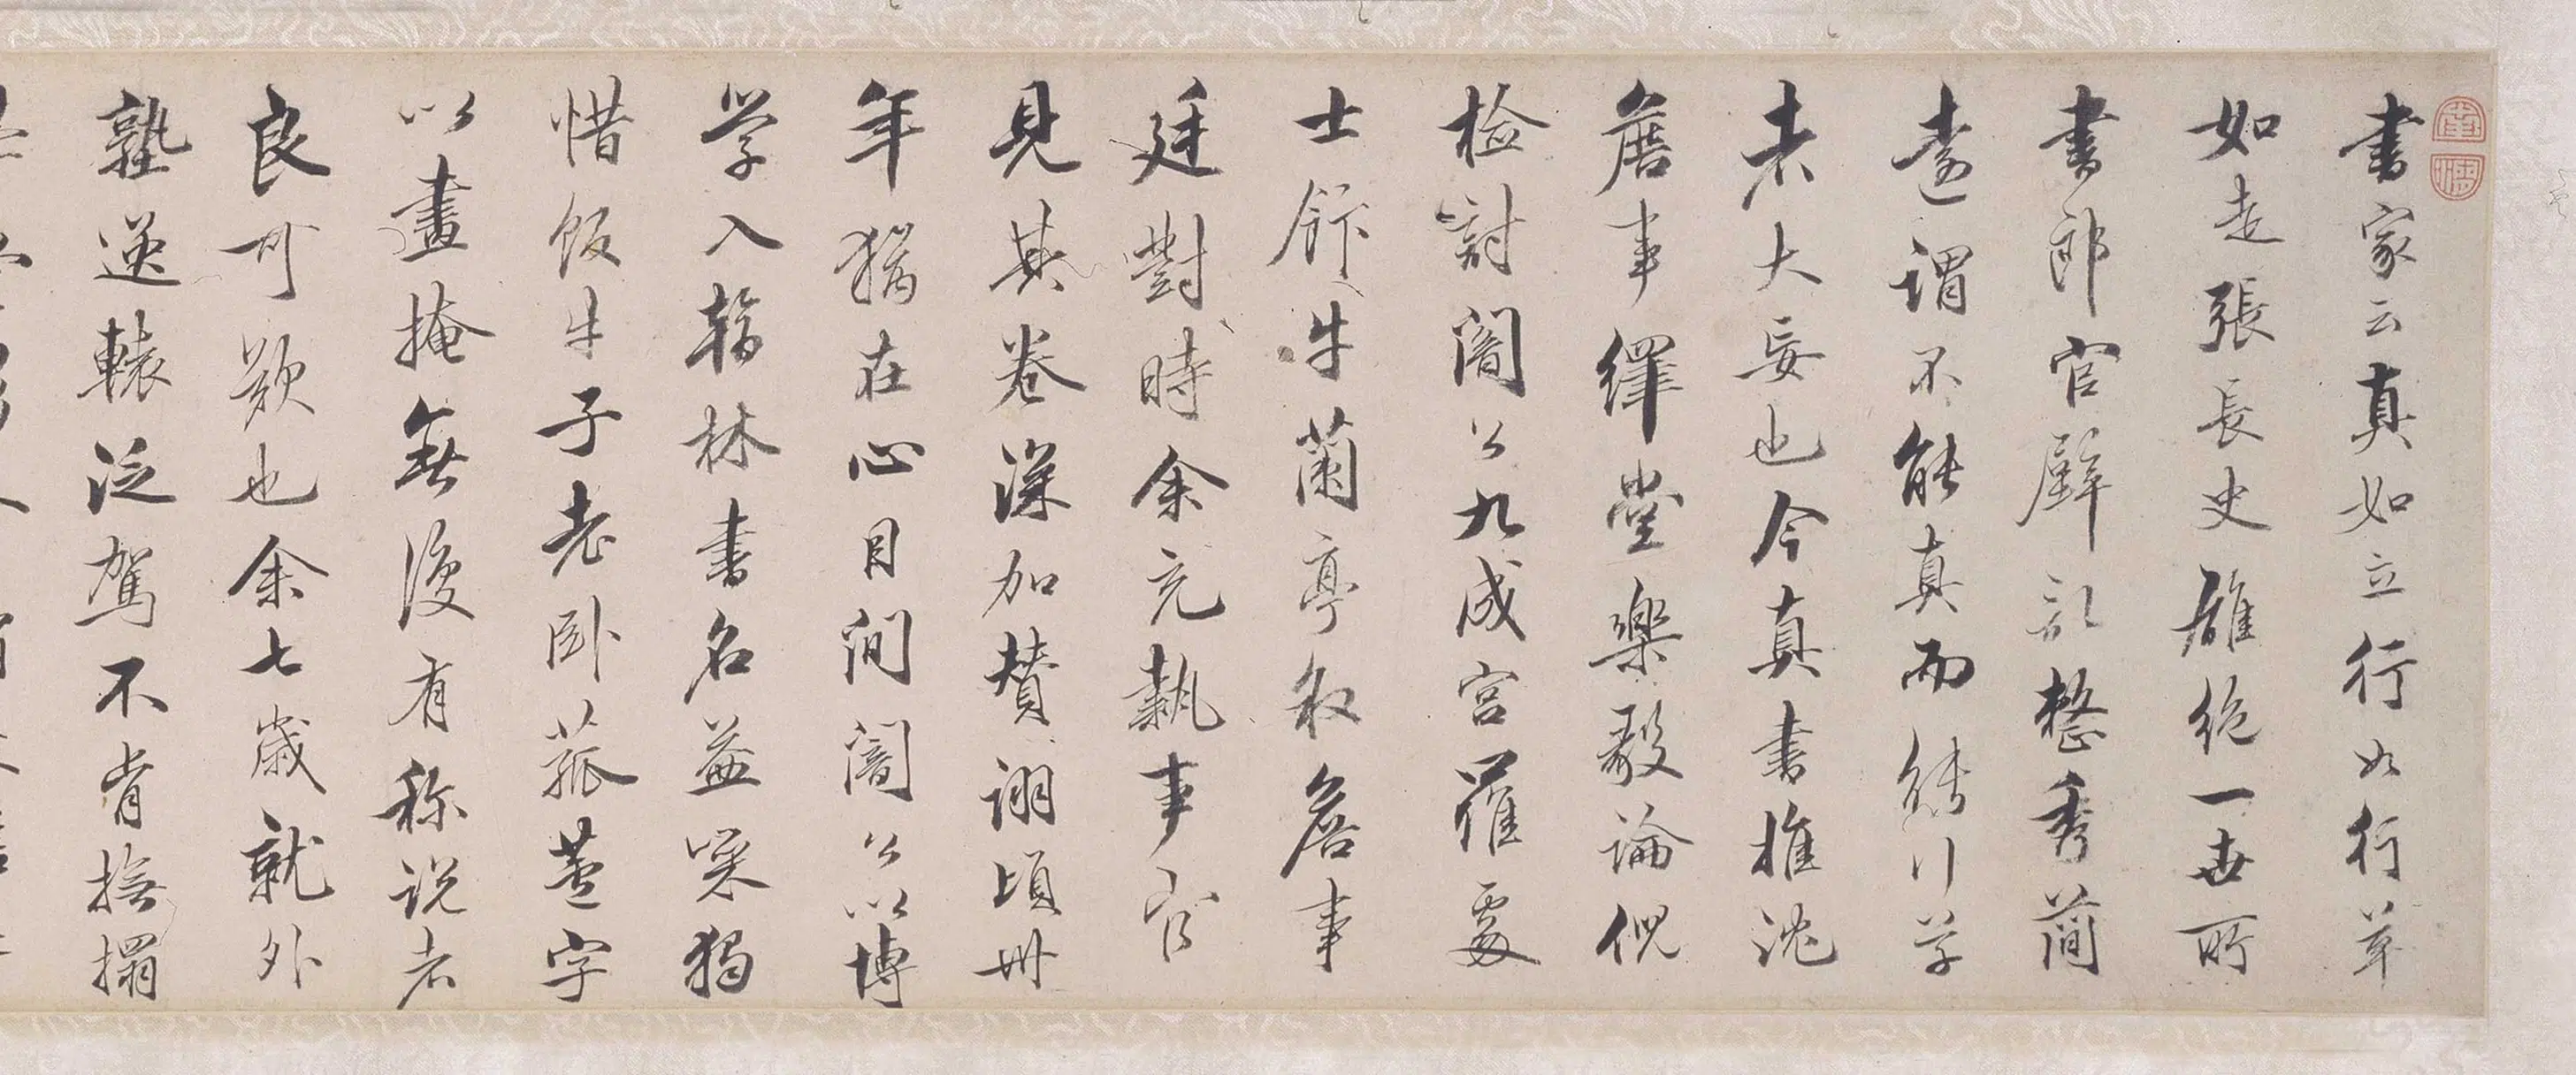 書家云真如立行如行草
如走張長史雄絶一世所
書郎官壁記整秀簡
遠謂不能真而能行草
者大妄也今真書推沈
詹事繹堂樂毅論倪
檢討闇公九成宮羅處
士飯牛蘭亭叙詹事
廷對時余充執事官
見其卷深加賛詡頃卅
年猶在心目間闇公以博
学入翰林書名益噪獨
惜飯牛子老卧菰蘆字
以畫掩無復有称説者
良可歎也余七歳就外
塾送轅泛駕不肯撫搨